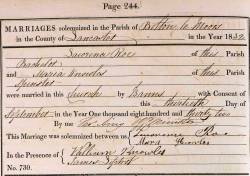 Page 244.
MARRIAGES solemnized in the Parish of Bolton le Moors
in the County of Lancaster in the Year 1832
Lawrence Roe of this Parish
Bachelor
and Maria Knowles of this Parish
Spinster
were married in this Church by Banns with Consent of
this thirtieth Day of
September in the Year One thousand eight hundred and thirty two
By me
This Marriage was solemnized between us Lawrence Roe
Maria Knowles
In the Presence of William Knowles
James
No. 730.